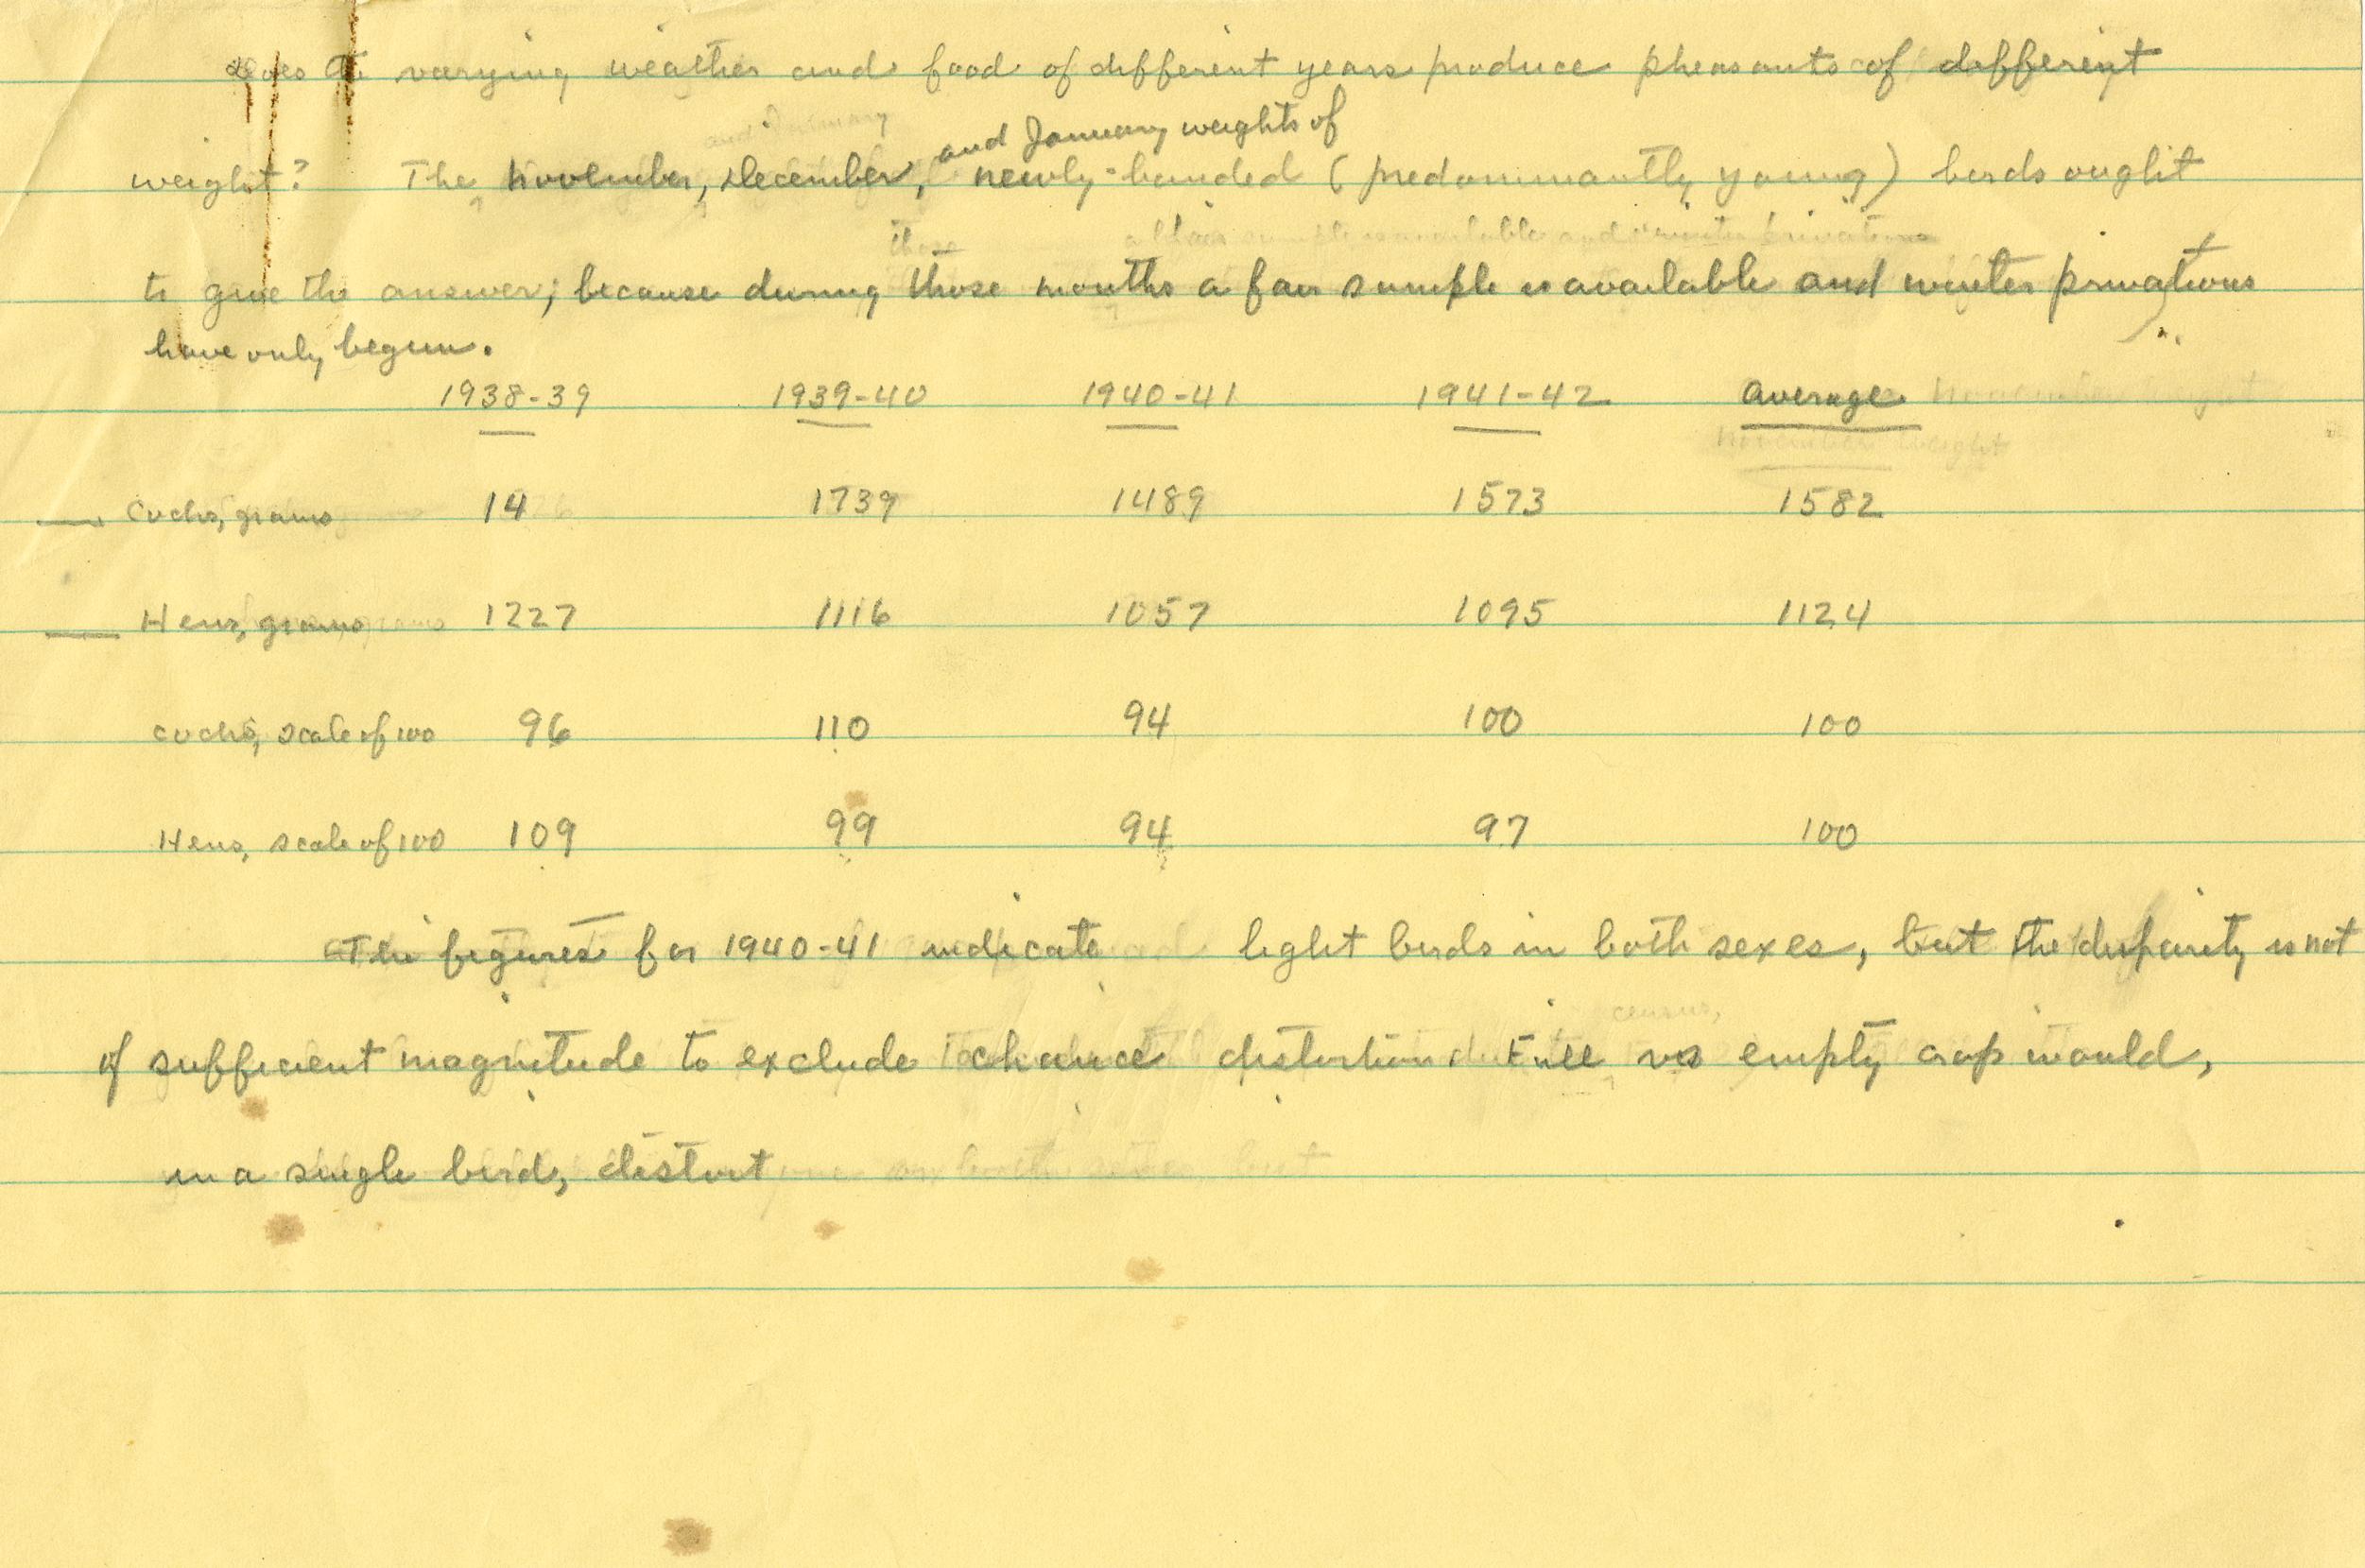 Does the varying weather and food of different years produce pheasants of different
and January weights of
weight? The November, December, newly-banded (predominantly young) birds ought
to give the answer, because during those months a fair sample is available and winter privations
have only begun.
1938-39 1939-40 1940-41 1941-42 Average
Cocks, grams 14 1739 1489 1573 1582
Hens, grams 1227 1116 1057 1095 1124
Cocks, scale of 100 96 110 94 100 100
Hens, scale of 100 109 99 94 97 100
The figures for 1940-41 indicate light birds in both sexes, but the disparity is not
of sufficient magnitude to exclude chance distortion. Full vs empty crop would,
in a single bird, distort